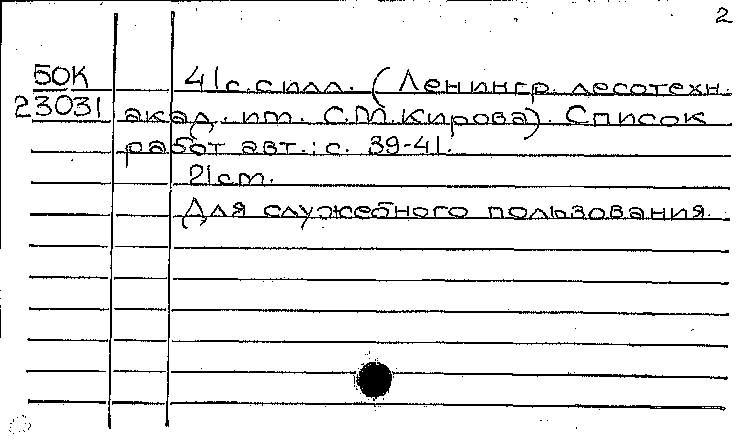 2
50К 41с. с илл. (Ленингр. лесотехн.
23031 акад. им. С.М.Кирова). Список
работ авт.: с. 39-41.
21см.
Для служебного пользования.